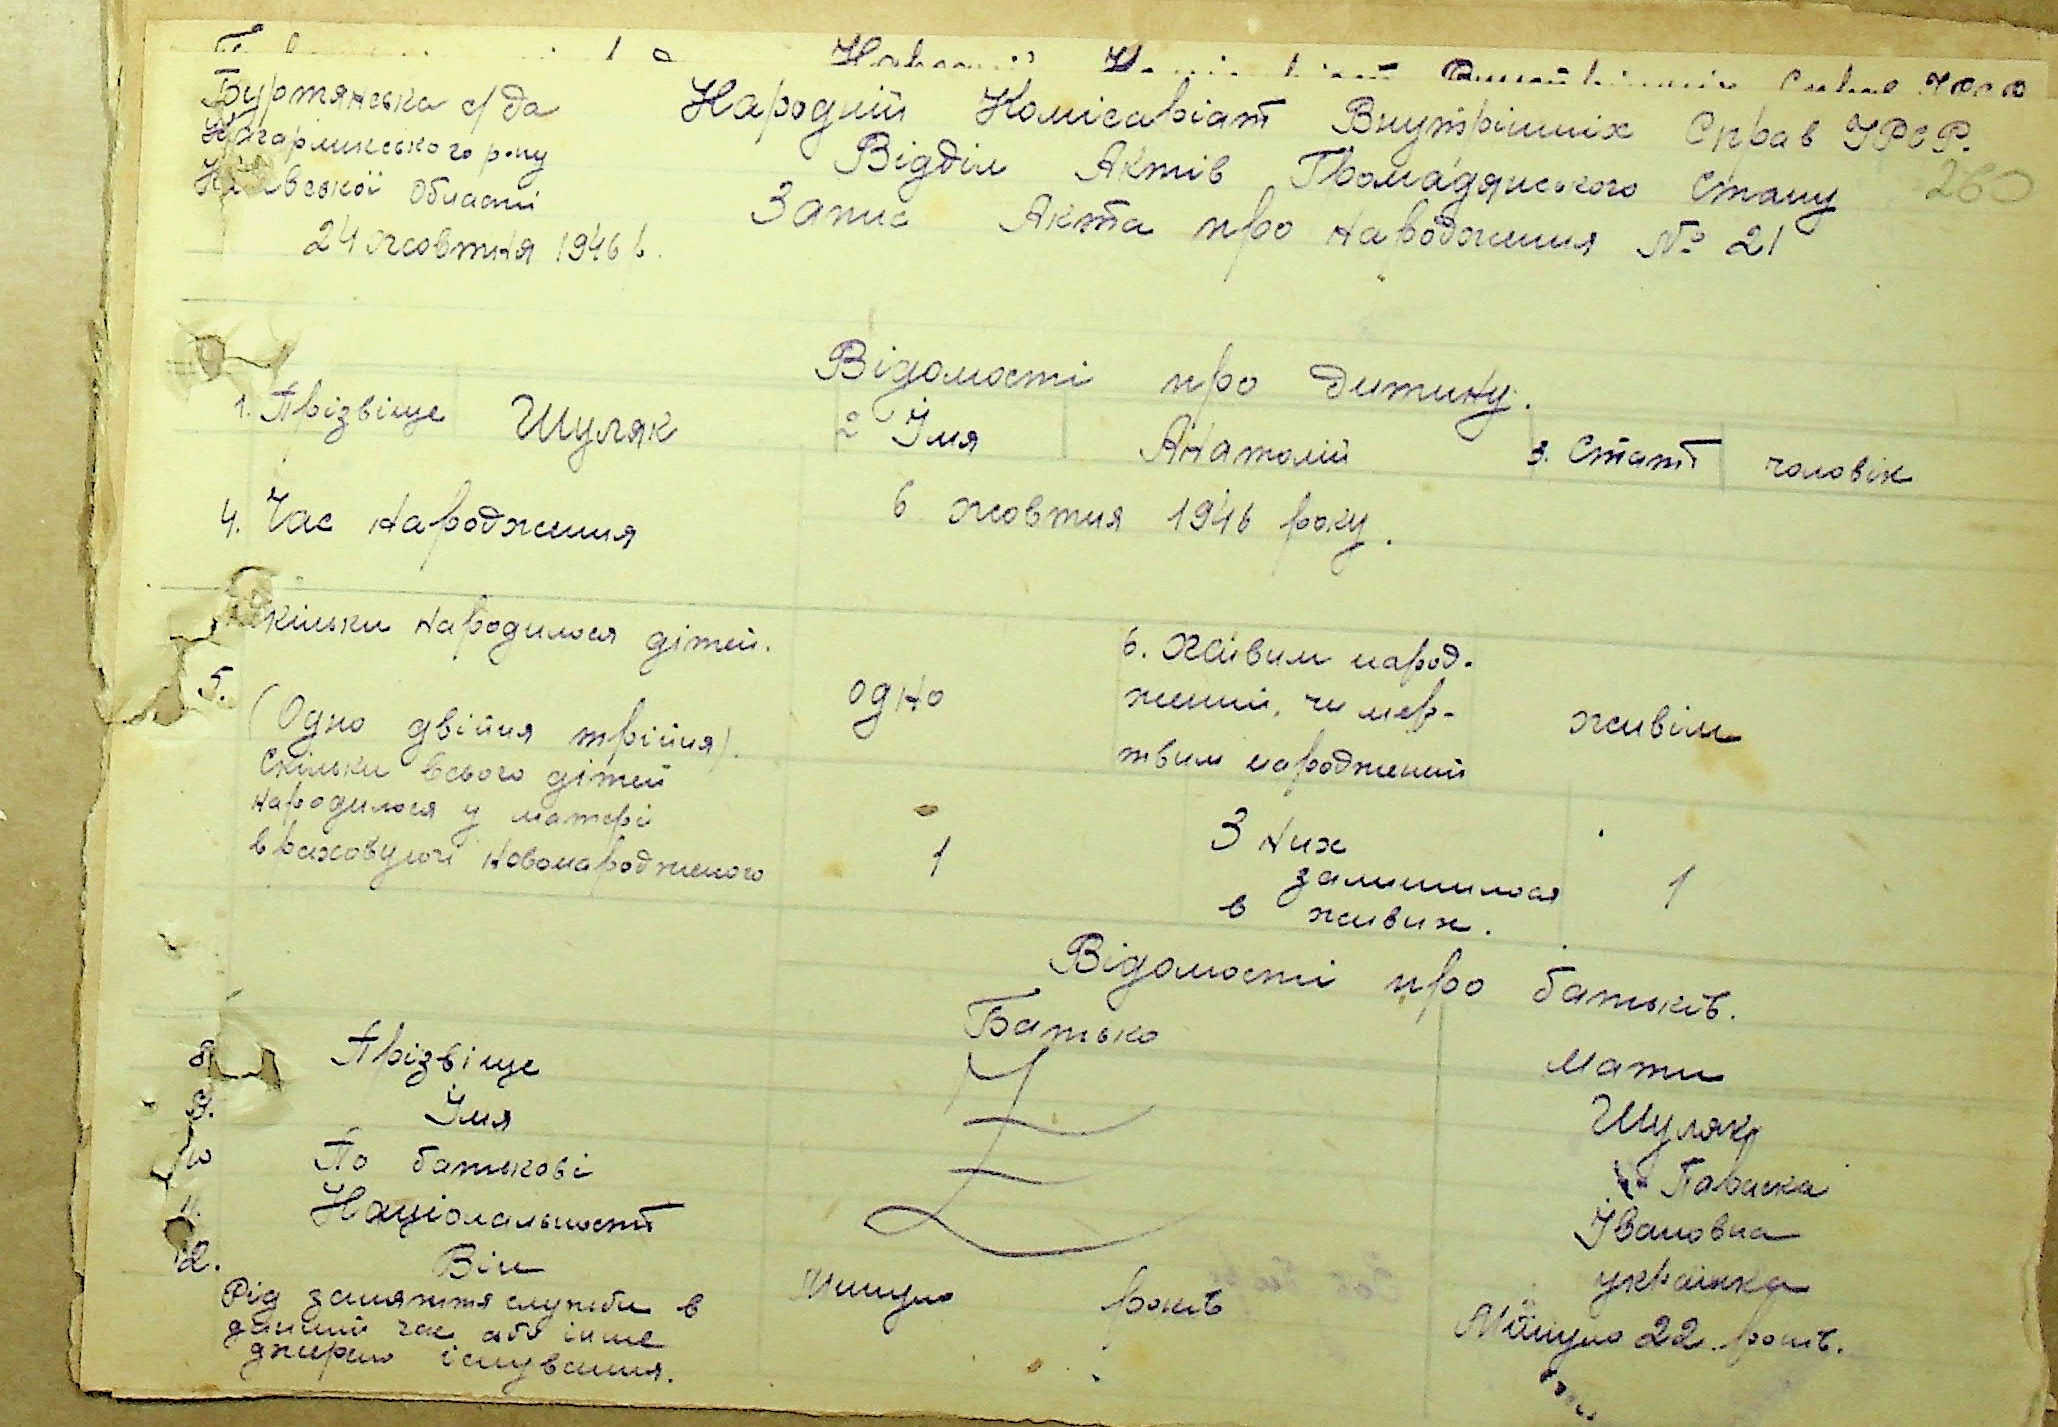 Буртянська с/да
Кагарликського р-ну
Київської області
24 жовтня 1946 р.
Народній Комісаріат Внутрішніх Справ УРСР.
Відділ Актів Громадянського Стану 260
Запис Акта про народження № 21
Відомості про дитину.
1. Прізвіще Шуляк 2 Імя Анатолій 3. Стать чоловік
4. Час народження 6 жовтня 1946 року.
скільки народилося дітей.
5. (Одно двійня трійня). одно
6. Живим народ-
жений, чи мер-
твим народжений
живім
Скільки всього дітей
народилося у матері
враховуючи новонародженого 1
З них
залишилося
в живих. 1
Відомості про батьків.
Батько Мати
8. Прізвіще Шуляк
9. Імя Параска
10 По батькові Івановна
11. Національність українка
12. Вік Минуло років Минуло 22 років.
Рід заняття служби в
даний час або інше
джерело існування.